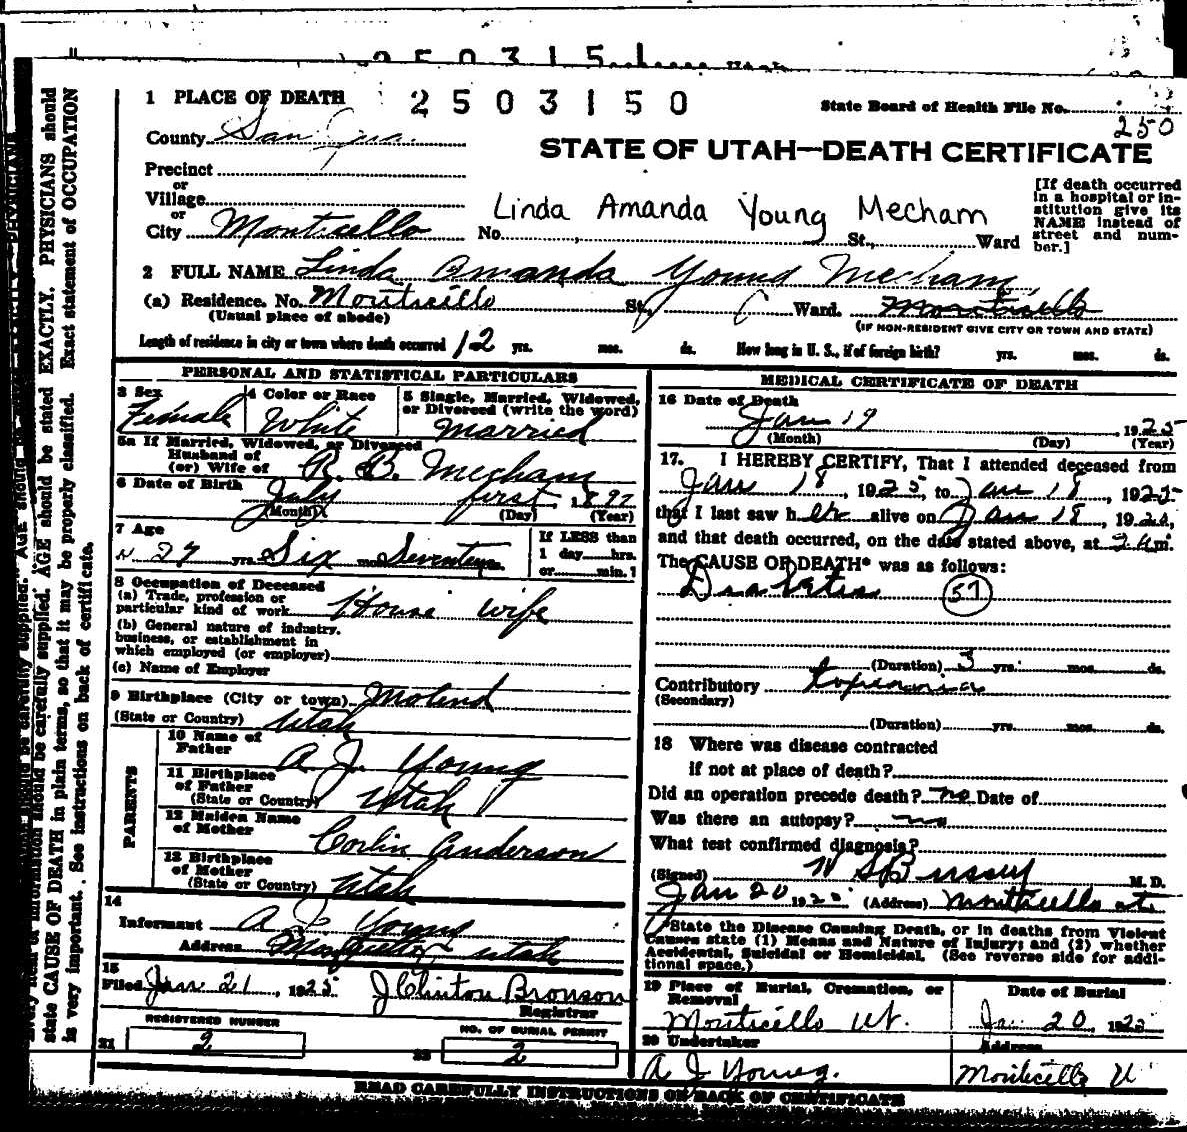 1 PLACE OF DEATH 2503150 State Board of Health File No. 250
County San Jua.
STATE OF UTAH—DEATH CERTIFICATE
Precinct
or
Village
or
City Monticello No. St., Ward
Linda Amanda Young Mecham
[If death occurred
in a hospital or in-
stitution give its
NAME instead of
street and num-
ber.]
2 FULL NAME Linda Amanda Young Mecham
(a) Residence. No. Monticello St., Ward. Monticello
(Usual place of abode) (IF NON-RESIDENT GIVE CITY OR TOWN AND STATE)
Length of residence in city or town where death occurred 12 yrs. mos. ds. How long in U. S., if of foreign birth? yrs. mos. ds.
PERSONAL AND STATISTICAL PARTICULARS
3 Sex Female
4 Color or Race White
5 Single, Married, Widowed,
or Divorced (write the word)
Married
5a If Married, Widowed, or Divorced
Husband of
(or) Wife of R. B. Mecham
6 Date of Birth July first, 1897
(Month) (Day) (Year)
7 Age
27 yrs. Six mos. Seventeen
If LESS than
1 day hrs.
or min. ?
8 Occupation of Deceased
(a) Trade, profession or
particular kind of work House wife
(b) General nature of industry,
business, or establishment in
which employed (or employer)
(c) Name of Employer
9 Birthplace (City or town)
(State or Country) Utah
PARENTS
10 Name of
Father A J Young
11 Birthplace
of Father
(State or Country) Utah
12 Maiden Name
of Mother Anderson
13 Birthplace
of Mother
(State or Country) Utah
14
Informant A J Young
Address Monticello Utah
15
Filed Jan 21, 1925 J Clinton Bronson
Registrar
REGISTERED NUMBER
21 2
NO. OF BURIAL PERMIT
22 2
MEDICAL CERTIFICATE OF DEATH
16 Date of Death
Jan 19, 1925
(Month) (Day) (Year)
17. I HEREBY CERTIFY, That I attended deceased from
Jan 18, 1925, to Jan 18, 1925
that I last saw her alive on Jan 18, 192
and that death occurred, on the date stated above, at 2 a m.
The CAUSE OF DEATH* was as follows:
Diabetes 57
(Duration) 3 yrs. mos. ds.
Contributory
(Secondary)
(Duration) yrs. mos. ds.
18 Where was disease contracted
if not at place of death?
Did an operation precede death? no Date of
Was there an autopsy? no
What test confirmed diagnosis?
(Signed) M. D.
Jan 20 192 (Address) Monticello ut.
*State the Disease Causing Death, or in deaths from Violent
Causes state (1) Means and Nature of Injury; and (2) whether
Accidental, Suicidal or Homicidal. (See reverse side for addi-
tional space.)
19 Place of Burial, Cremation, or
Removal
Monticello Ut.
Date of Burial
Jan 20, 1925
20 Undertaker
A J Young.
Address
Monticello U
READ CAREFULLY INSTRUCTIONS ON BACK OF CERTIFICATE
information should be carefully supplied. AGE should be stated EXACTLY. PHYSICIANS should
state CAUSE OF DEATH in plain terms, so that it may be properly classified. Exact statement of OCCUPATION
is very important. See instructions on back of certificate.